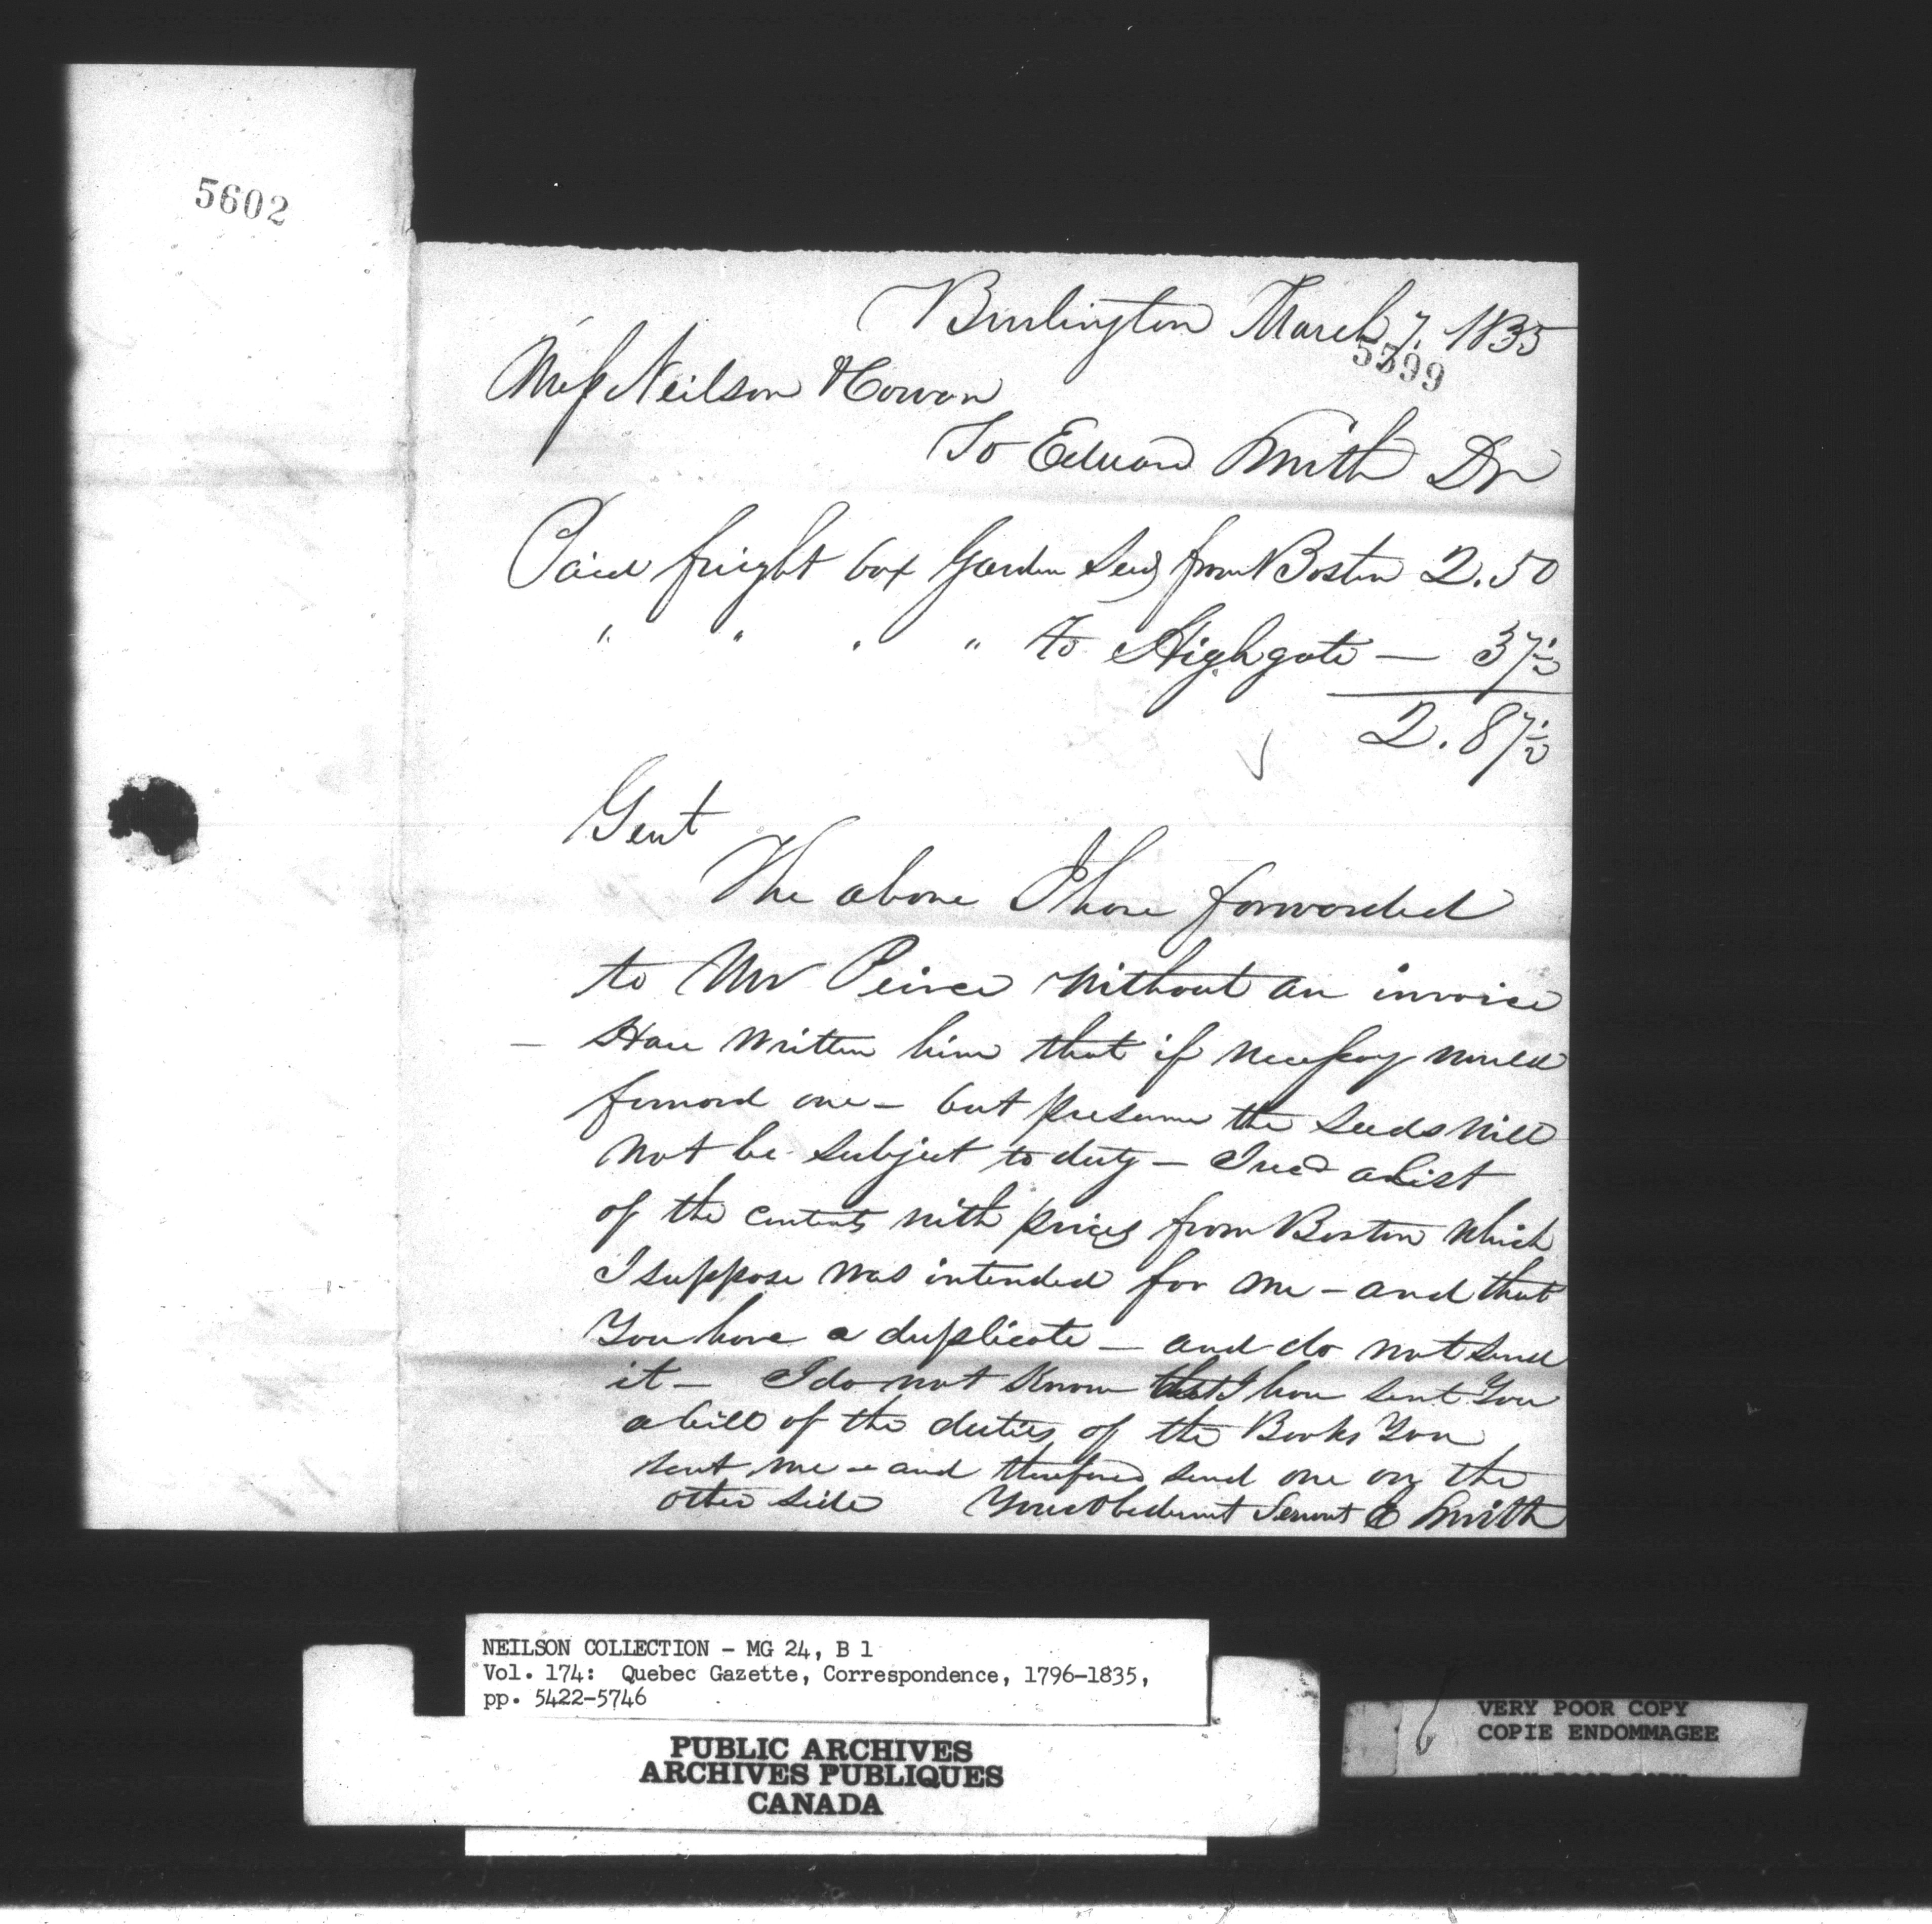 5602
Burlington March 7. 1835
5599
Mess Neilson & Cowan
To Edward Smith Dr
Paid freight box Garden Seeds from Boston 2.50
" " " " to Highgate — 37½
2.87½
Gent
The above I have forwarded
to Mr Peirce without an invoice
— Have written him that if necessary would
forward one — but presume the seeds will
not be subject to duty — I recd a List
of the contents with prices from Boston which
I suppose was intended for me — and that
You have a duplicate — and do not send
it — I do not know that I have sent You
a bill of the duties of the Books You
sent me — and therefore send one on the
other side Your Obedient Servant E Smith
NEILSON COLLECTION - MG 24, B 1
Vol. 174: Quebec Gazette, Correspondence, 1796-1835,
pp. 5422-5746
PUBLIC ARCHIVES
ARCHIVES PUBLIQUES
CANADA
VERY POOR COPY
COPIE ENDOMMAGEE